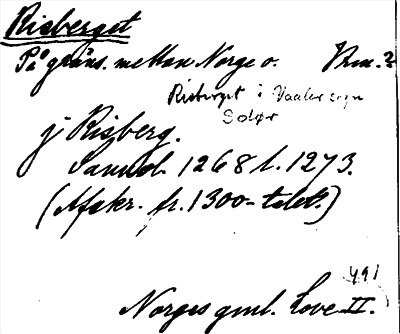 Risberget
På gräns. mellan Norge o. Vrm.?
Risberget i Vaaler sogn
Solør
j Risberg.
Sannol. 1268 l. 1273.
(Afskr. fr. 1300-talet.)
491
Norges gml. Love II.